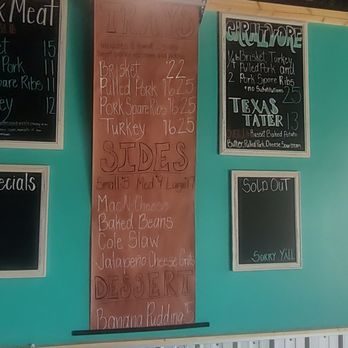 k Meat
sket 15
Pork 11
Spare Ribs 11
key 12
ecials
Brisket 22
Pulled Pork 16.25
Pork Spare Ribs 16.25
Turkey 16.25
SIDES
Small 5 Med 9 Large 17
Mac N Cheese
Baked Beans
Cole Slaw
Jalapeno Cheese Grits
DESSERT
Banana Pudding 5
CARNIVORE
1/4 lb Brisket, Turkey
Pulled Pork and
2 Pork Spare Ribs
no Substitutions 25
TEXAS
TATER 13
Baked Potato
Butter, Pulled Pork, Cheese, Sour cream
SOLD OUT
SORRY Y'ALL